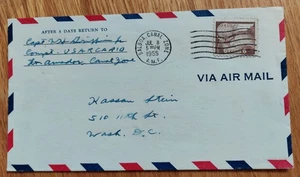 AFTER 5 DAYS RETURN TO
Capt
Compt. USARCARIB
Ft Amador Canal Zone
BALBOA CANAL ZONE
5 PM
1955
VIA AIR MAIL
Hassan Stein
510 11th St.
Wash. D.C.